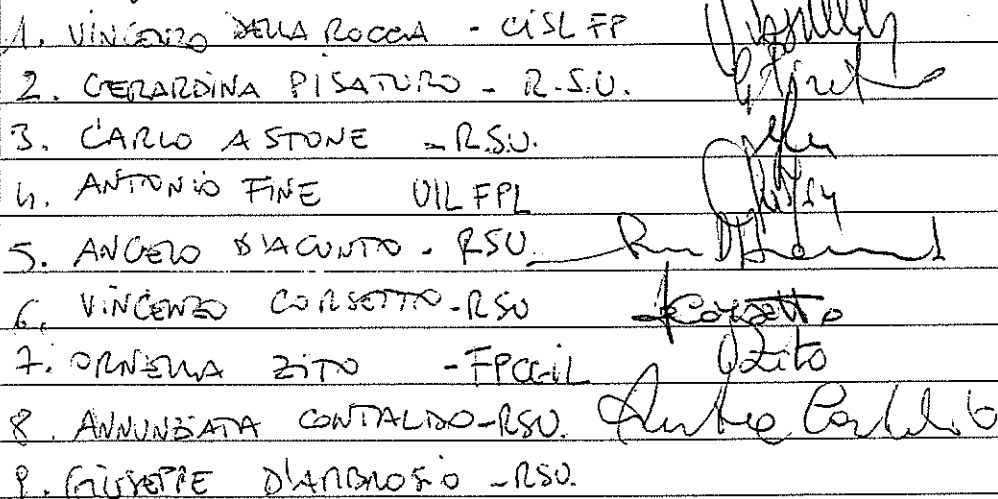 1. VINCENZO DELLA ROCCA - CISL FP
2. GERARDINA PISATURO - R.S.U.
3. CARLO ASTONE - R.S.U.
4. ANTONIO FINE UIL FPL
5. ANGELO D'ACUNTO - RSU
6. VINCENZO CORSETTO - RSU Corsetto
7. ORNELLA ZITO - FPCGIL OZito
8. ANNUNZIATA CONTALDO - RSU.
9. GIUSEPPE D'AMBROSIO - RSU.